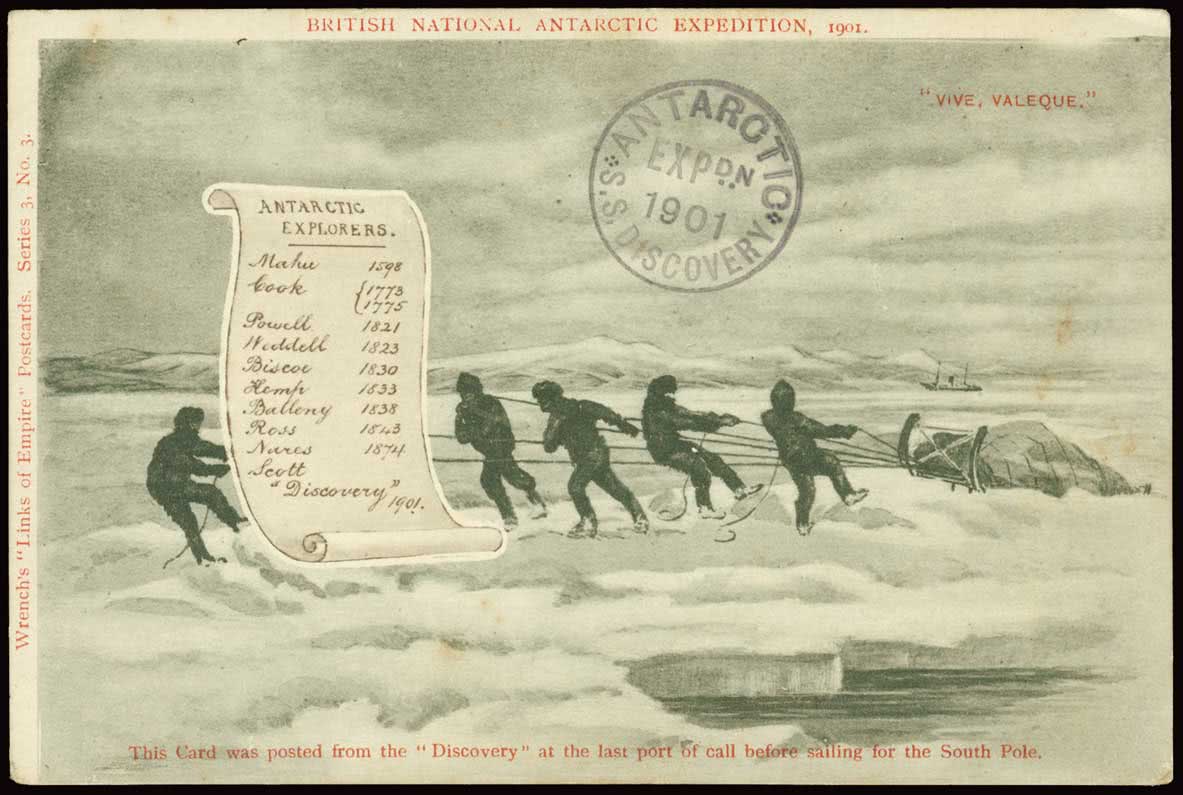 BRITISH NATIONAL ANTARCTIC EXPEDITION, 1901.
"VIVE, VALEQUE."
ANTARCTIC
EXPD.N
1901
S.S. DISCOVERY
Wrench's "Links of Empire" Postcards. Series 3, No. 3.
ANTARCTIC
EXPLORERS.
Mahu 1598
Cook {1773
1775
Powell 1821
Weddell 1823
Biscoe 1830
Hemp 1833
Balleny 1838
Ross 1843
Nares 1874
Scott
"Discovery"
1901.
This Card was posted from the "Discovery" at the last port of call before sailing for the South Pole.